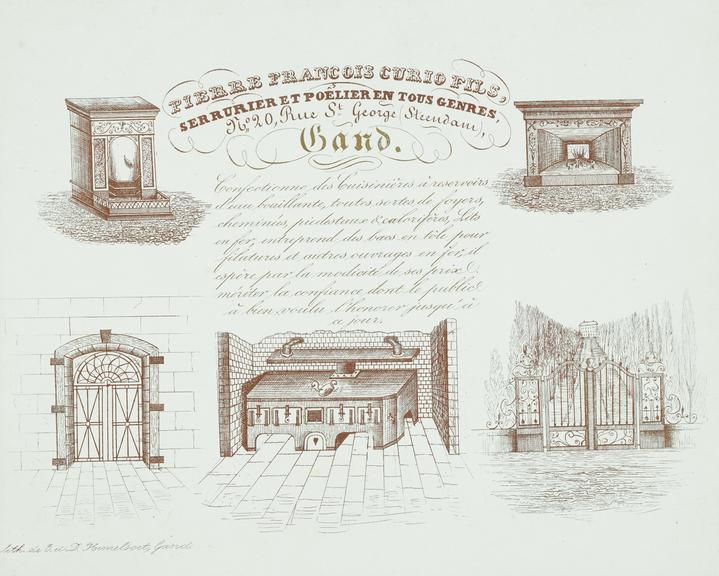 PIERRE FRANÇOIS CURIO FILS,
SERRURIER ET POÊLIER EN TOUS GENRES,
N.º 20, Rue S.t George (Steendam),
Gand.
Confectionne des Cuisinières à reservoirs
d'eau bouillante, toutes sortes de foyers,
cheminées, piedestaux & calorifères, Lits
en fer, entreprend des bacs en tôle pour
filatures et autres ouvrages en fer, il
espère par la modicité de ses prix
mériter la confiance dont le public
à bien voulu l'honorer jusqu'à
ce jour.
Lith. de D. Hemelsoet, Gand.